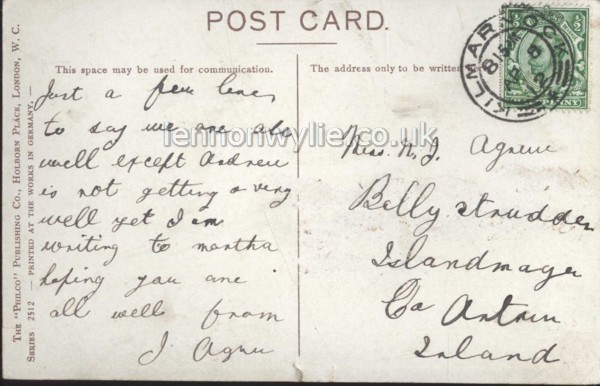 POST CARD.
This space may be used for communication.
Just a few lines
to say we are all
well except Andrew
is not getting very
well yet I am
writing to martha
hoping you are
all well from
J. Agnew
The address only to be written
Miss. N. J. Agnew
Ballystrudder
Islandmagee
Co Antrim
Ireland
KILMARNOCK
PENNY
The "Philco" Publishing Co., Holborn Place, London, W. C.
Series 2512 — Printed at the Works in Germany.
lennonwylie.co.uk